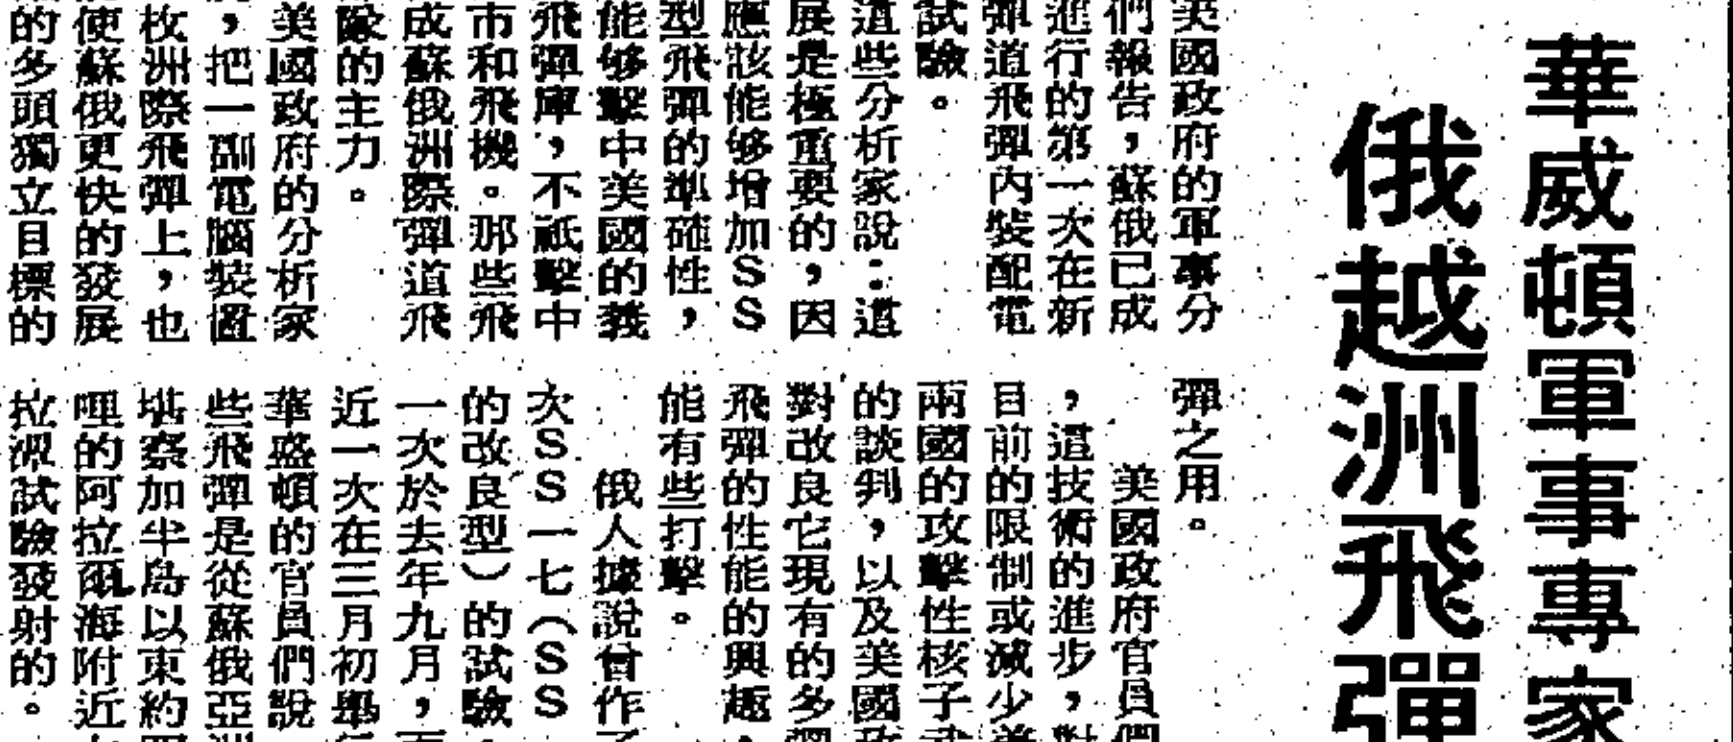 華威頓軍事專家
俄越洲飛彈
美國政府的軍事分
們報告，蘇俄已成
進行的第一次在新
彈道飛彈內裝配電
試驗。
這些分析家說：這
展是極重要的，因
應該能够增加ＳＳ
型飛彈的準確性，
能够擊中美國的義
飛彈庫，不祇擊中
市和飛機。那些飛
成蘇俄洲際彈道飛
隊的主力。
美國政府的分析家
，把一副電腦裝置
枚洲際飛彈上，也
使蘇俄更快的發展
的多頭獨立目標的
彈之用。
美國政府官員們
，這技術的進步，對
目前的限制或減少
兩國的攻擊性核子武
的談判，以及美國政
對改良它現有的多彈
飛彈的性能的興趣，
能有些打擊。
俄人據說曾作了
次ＳＳ一七（ＳＳ
的改良型）的試驗，
一次於去年九月，而
近一次在三月初舉行
華盛頓的官員們說
些飛彈是從蘇俄亞洲
堪察加半島以東約四
哩的阿拉爾海附近
拉沺試驗發射的。